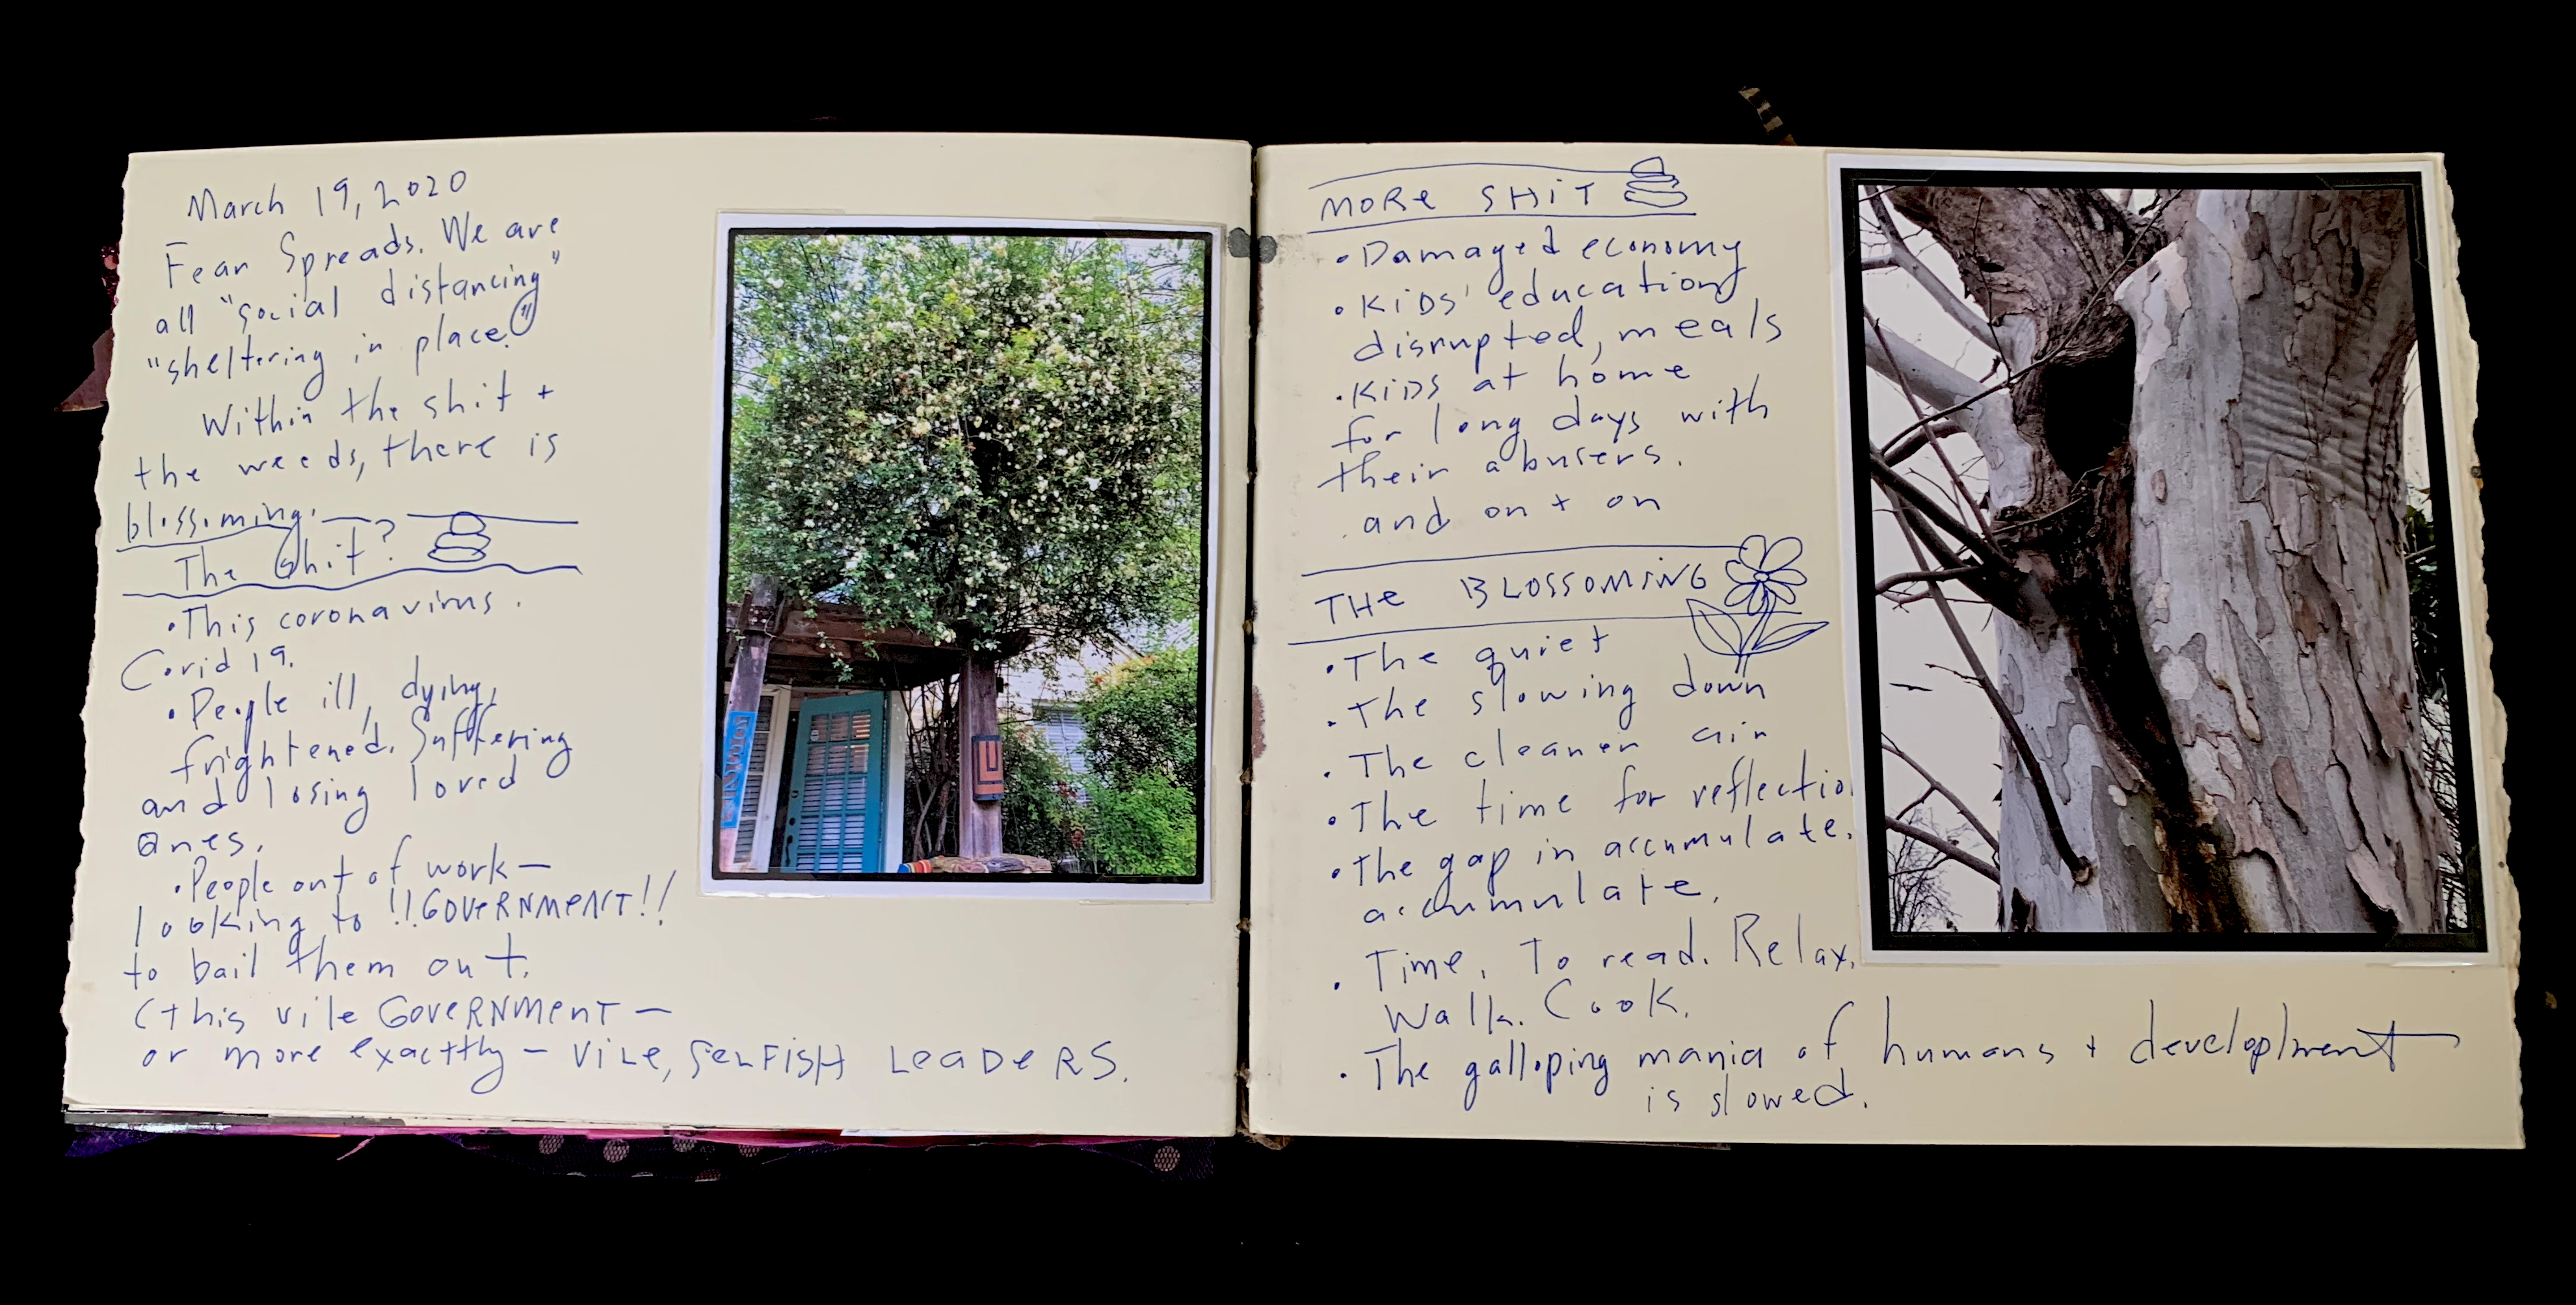 March 19, 2020
Fear Spreads. We are
all "social distancing"
"sheltering in place."
Within the shit +
the weeds, there is
blossoming.
The Shit?
• This coronavirus.
Covid 19.
• People ill, dying,
frightened. Suffering
and losing loved
ones.
• People out of work —
looking to !!GOVERNMENT!!
to bail them out.
(this vile GOVERNMENT —
or more exacttly — VILE, SELFISH LEADERS.
MORE SHIT
• Damaged economy
• KIDS' education
disrupted, meals
• KIDS at home
for long days with
their abusers.
. and on + on
THE BLOSSOMING
• The quiet
• The slowing down
• The cleaner air
• The time for reflectio
• The gap in accumulate.
accumulate.
• Time. To read. Relax.
Walk. Cook.
• The galloping mania of humans + development
is slowed.